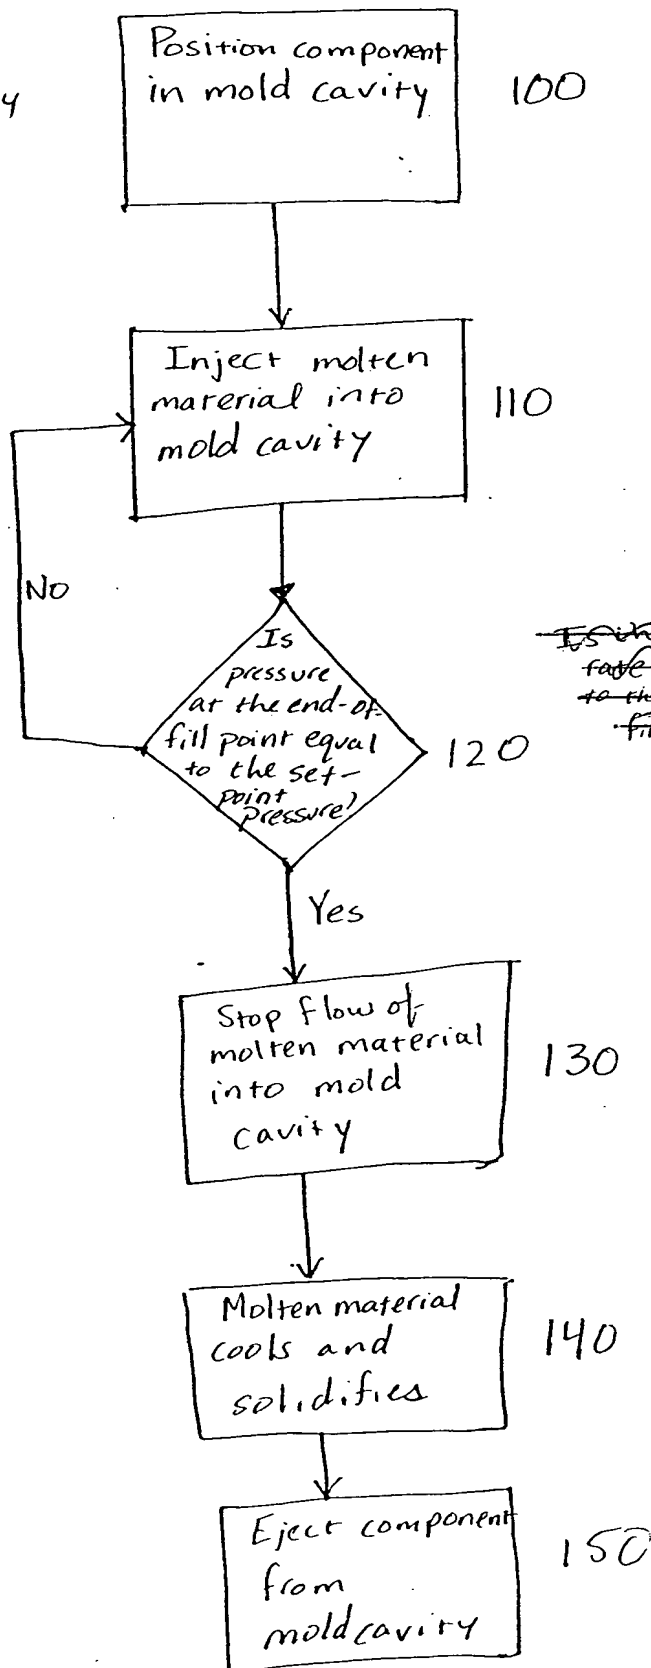 Position component
in mold cavity
100
y
Inject molten
material into
mold cavity
110
No
Is
pressure
at the end-of-
fill point equal
to the set-
point
pressure?
120
to the
Yes
Stop flow of
molten material
into mold
cavity
130
Molten material
cools and
solidifies
140
Eject component
from
mold cavity
150